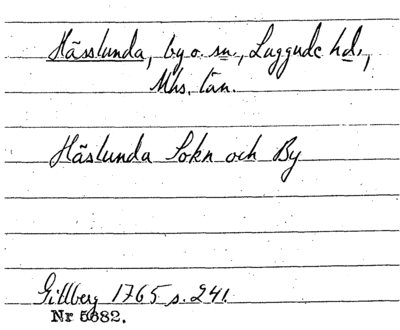 Hässlunda, by o. sn., Luggude hd.,
Mhs. län.
Häslunda Sokn och By
Gillberg 1765 s. 241.
Nr 5682.